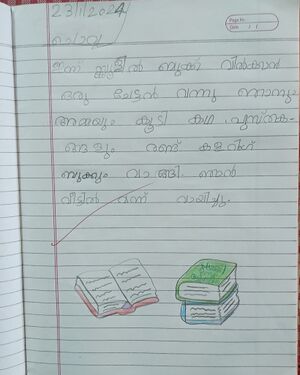 23/1/2024
Page No.
Date / /
ചൊവ്വ
ഇന്ന് സ്കൂളിൽ ബുക്ക് വിൽക്കാൻ
ഒരു ചേട്ടൻ വന്നു ഞാനും
അമ്മയും കൂടി കഥ പുസ്തക-
ങ്ങളും രണ്ട് കളറിംഗ്
ബുക്കും വാങ്ങി. ഞാൻ
വീട്ടിൽ വന്ന് വായിച്ചു.